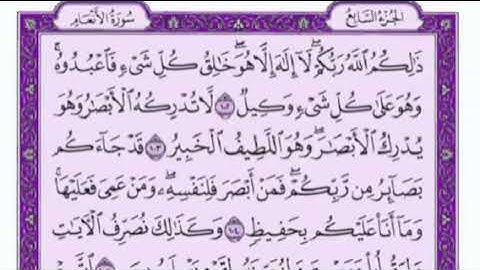 الجزء السابع سورة الأنعام
ذَٰلِكُمُ ٱللَّهُ رَبُّكُمْ ۖ لَآ إِلَٰهَ إِلَّا هُوَ ۖ خَٰلِقُ كُلِّ شَىْءٍ فَٱعْبُدُوهُ ۚ
وَهُوَ عَلَىٰ كُلِّ شَىْءٍ وَكِيلٌ ١٠٢ لَّا تُدْرِكُهُ ٱلْأَبْصَٰرُ وَهُوَ
يُدْرِكُ ٱلْأَبْصَٰرَ ۖ وَهُوَ ٱللَّطِيفُ ٱلْخَبِيرُ ١٠٣ قَدْ جَآءَكُم
بَصَآئِرُ مِن رَّبِّكُمْ ۖ فَمَنْ أَبْصَرَ فَلِنَفْسِهِۦ ۖ وَمَنْ عَمِىَ فَعَلَيْهَا ۚ
وَمَآ أَنَا۠ عَلَيْكُم بِحَفِيظٍ ١٠٤ وَكَذَٰلِكَ نُصَرِّفُ ٱلْءَايَٰتِ